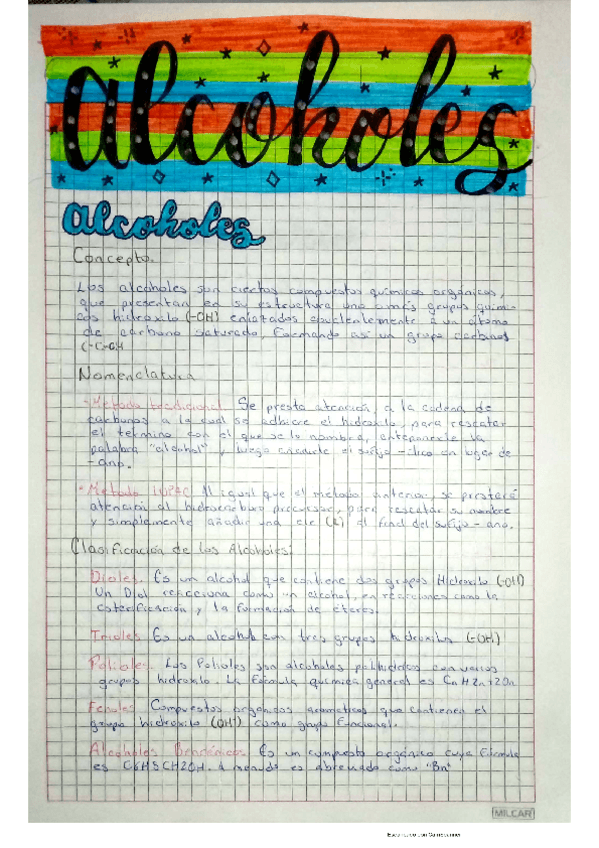 Alcoholes
Alcoholes
Concepto.
Los alcoholes son ciertos compuestos químicos orgánicos,
que presentan en su estructura uno o más grupos quími-
cos hidroxilo (-OH) enlazados covalentemente a un átomo
de carbono saturado, formando así un grupo carbinol
(-C-OH
Nomenclatura
- Método tradicional. Se presta atención, a la cadena de
carbonos a la cual se adhiere el hidroxilo, para rescatar
el termino con el que se lo nombra, anteponerle la
palabra "alcohol" y luego añadirle el sufijo -ílico en lugar de
-ano.
- Método IUPAC Al igual que el método anterior, se prestará
atención al hidrocarburo precursor, para rescatar su nombre
y simplemente añadir una ele (L) al final del sufijo -ano.
Clasificación de los Alcoholes:
Dioles. Es un alcohol que contiene dos grupos Hidroxilo (-OH)
Un Diol reacciona como un alcohol, en reacciones como la
esterificación y la formación de éteres.
Trioles Es un alcohol con tres grupos hidroxilo (-OH)
Polioles. Los Polioles son alcoholes polihídricos con varios
grupos hidroxilo. La Fórmula química general es CnH2n+2On
Fenoles Compuestos orgánicos aromáticos que contienen el
grupo hidroxilo (OH) como grupo Funcional.
Alcoholes Bencénicos Es un compuesto orgánico cuya Fórmula
es C6H5CH2OH. A menudo es abreviado como "Bn"
MILCAR
Escaneado con CamScanner